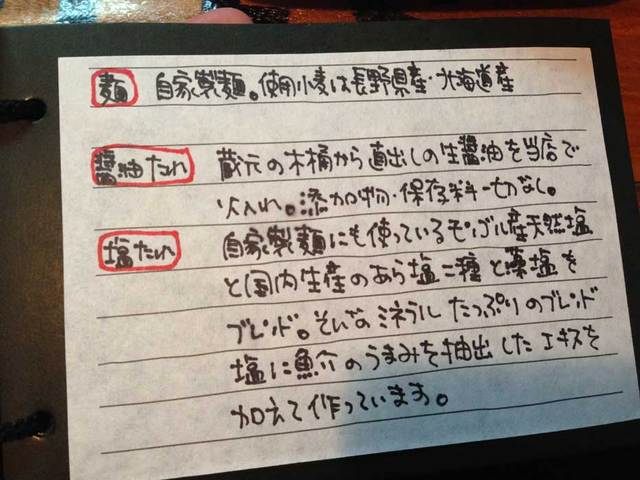 麺 自家製麺。使用小麦は長野県産・北海道産
醤油たれ 蔵元の木桶から直出しの生醤油を当店で
火入れ。添加物・保存料一切なし。
塩たれ 自家製麺にも使っているモンゴル産天然塩
と国内生産のあら塩二種と藻塩を
ブレンド。そんなミネラルたっぷりのブレンド
塩に魚介のうまみを抽出したエキスを
加えて作っています。